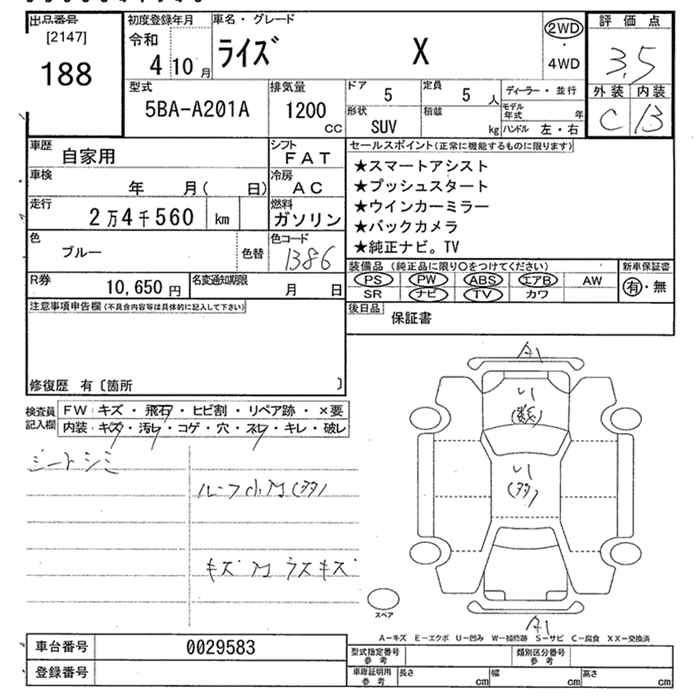 出品番号
[2147]
188
初度登録年月
令和 4年10月
車名・グレード
ライズ X
2WD
・
4WD
評価点
3.5
外装 内装
C B
型式
5BA-A201A
排気量
1200
CC
ドア 5
定員 5人
形状
SUV
積載 kg
ディーラー・並行
モデル年式 年
ハンドル 左・右
車歴
自家用
シフト
FAT
車検
年 月( 日)
冷房
AC
走行
2万4千560 km
燃料
ガソリン
色
ブルー
色替
色コード
1386
R券
10,650円
名変通知期限
月 日
セールスポイント(正常に機能するものに限ります)
★スマートアシスト
★プッシュスタート
★ウインカーミラー
★バックカメラ
★純正ナビ。TV
装備品(純正品に限り○をつけてください)
PS PW ABS エアB AW
SR ナビ TV カワ
新車保証書
有・無
後日品
保証書
注意事項申告欄(不具合内容等は具体的に記入して下さい)
修復歴 有〔箇所 〕
検査員記入欄
FW キズ・飛石・ヒビ割・リペア跡・×要
内装 キズ・汚レ・コゲ・穴・スレ・キレ・破レ
シートシミ
A1
A1
スペア
A-キズ E-エクボ U-凹み W-補修跡 S-サビ C-腐食 XX-交換済
車台番号
0029583
登録番号
型式指定番号
参考
類別区分番号
参考
車庫証明用
参考
長さ cm
幅 cm
高さ cm